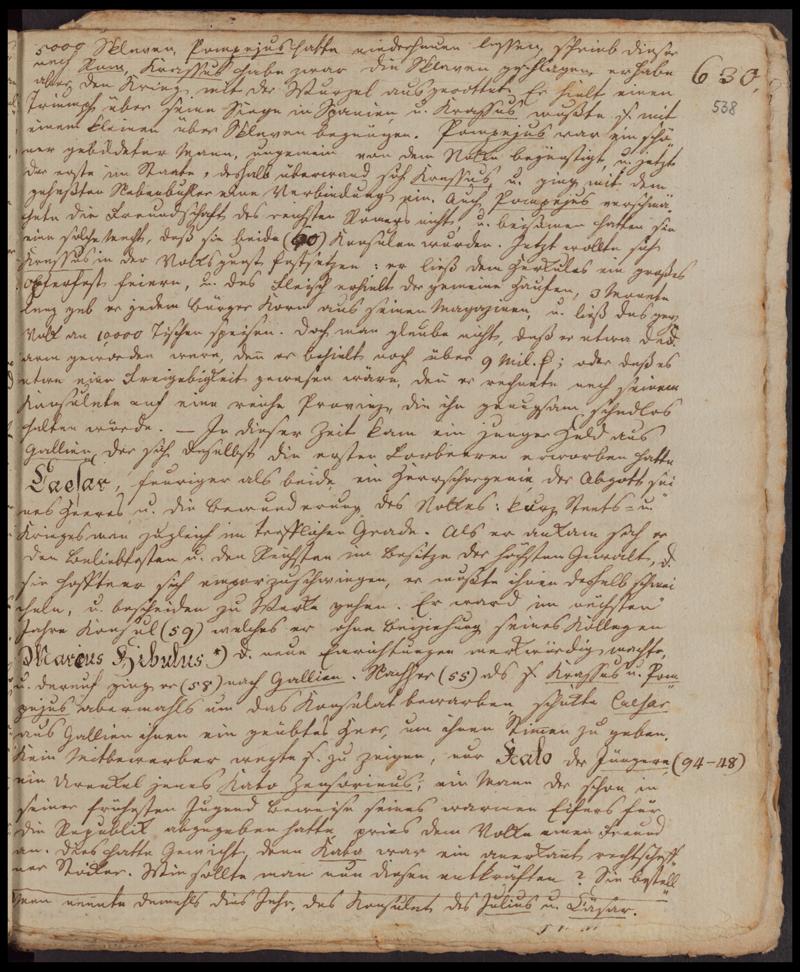 5000 Sklaven, Pompejus hatte niederhauen lassen, schrieb dieser
nach Rom, Krassus habe zwar die Sklaven geschlagen, er habe
aber den Krieg mit der Wurzel ausgerottet. Er hielt einen
630.
538
Triumph über seine Siege in Spanien u. Krassus mußte s. mit
einem kleinen über Sklaven begnügen. Pompejus war ein schö-
ner gebildeter Mann, ungemein von dem Volke begünstigt, u. jetzt
der erste im Staate, deshalb überwand sich Krassus, u. ging mit dem
gehaßten Nebenbuhler eine Verbindung ein. Auch Pompejus verschmä-
hete die Freundschaft des reichsten Römers nicht, u. beisamen hatten sie
eine solche Macht, daß sie beide (70) Konsulen wurden. Jetzt wollte sich
Krassus in der Volksgunst festsetzen: er ließ dem Herkules ein großes
Opferfest feiern, u. das Fleisch erhielt der gemeine Haufen, 3 Monate
lang gab er jedem Bürger Korn aus seinen Magazinen, u. ließ das ganze
Volk an 10000 Tischen speisen. Doch man glaube nicht, daß er etwa dad.
arm geworden wäre, denn er behielt noch über 9 Mil.; oder daß es
etwa eine Freigebigkeit gewesen wäre, den er rechnete nach seinem
Konsulate auf eine reiche Provinz, die ihn genugsam schadlos
halten würde. — In dieser Zeit kam ein junger Held aus
Gallien, der sich daselbst die ersten Lorbeeren erworben hatte
Caesar, feuriger als beide, ein Herrschergenie, der Abgott sei-
nes Heeres u. die Bewunderung des Volkes: kurz Staats- u.
Kriegsman zugleich im trefflichen Grade. Als er ankam sah er
den Beliebtesten u. den Reichsten im Besitze der höchsten Gewalt, d.
sie hoffte er sich emporzuschwingen, er mußte ihnen deshalb schmei-
cheln, u. bescheiden zu Werke gehen. Er ward im nächsten
Jahre Konsul (59) welches er ohne Beiziehung seines Kollegen
Marcus Bibulus *) d. neue Einrichtungen merkwürdig machte,
u. darauf ging er (58) nach Gallien. Nachher (55) als s. Krassus u. Pom-
pejus abermahls um das Konsulat bewarben schikte Caesar
aus Gallien ihnen ein geübtes Heer, um ihnen Stimen zu geben.
Kein Mitbewerber wagte s. zu zeigen, nur Kato der Jüngere (94-48)
ein Urenkel jenes Kato Zensorinus; ein Mann der schon in
seiner frühesten Jugend Beweise seines warmen Eifers für
die Republik abgegeben hatte, pries dem Volke einen Freund
an. Dies hatte Gewicht, denn Kato war ein anerkant rechtschaff-
ner Stoiker. Wie sollte man nun diesen entkräften? Sie bestell-
man nannte damahls dies Jahr, das Konsulat des Julius u. Cäsar.